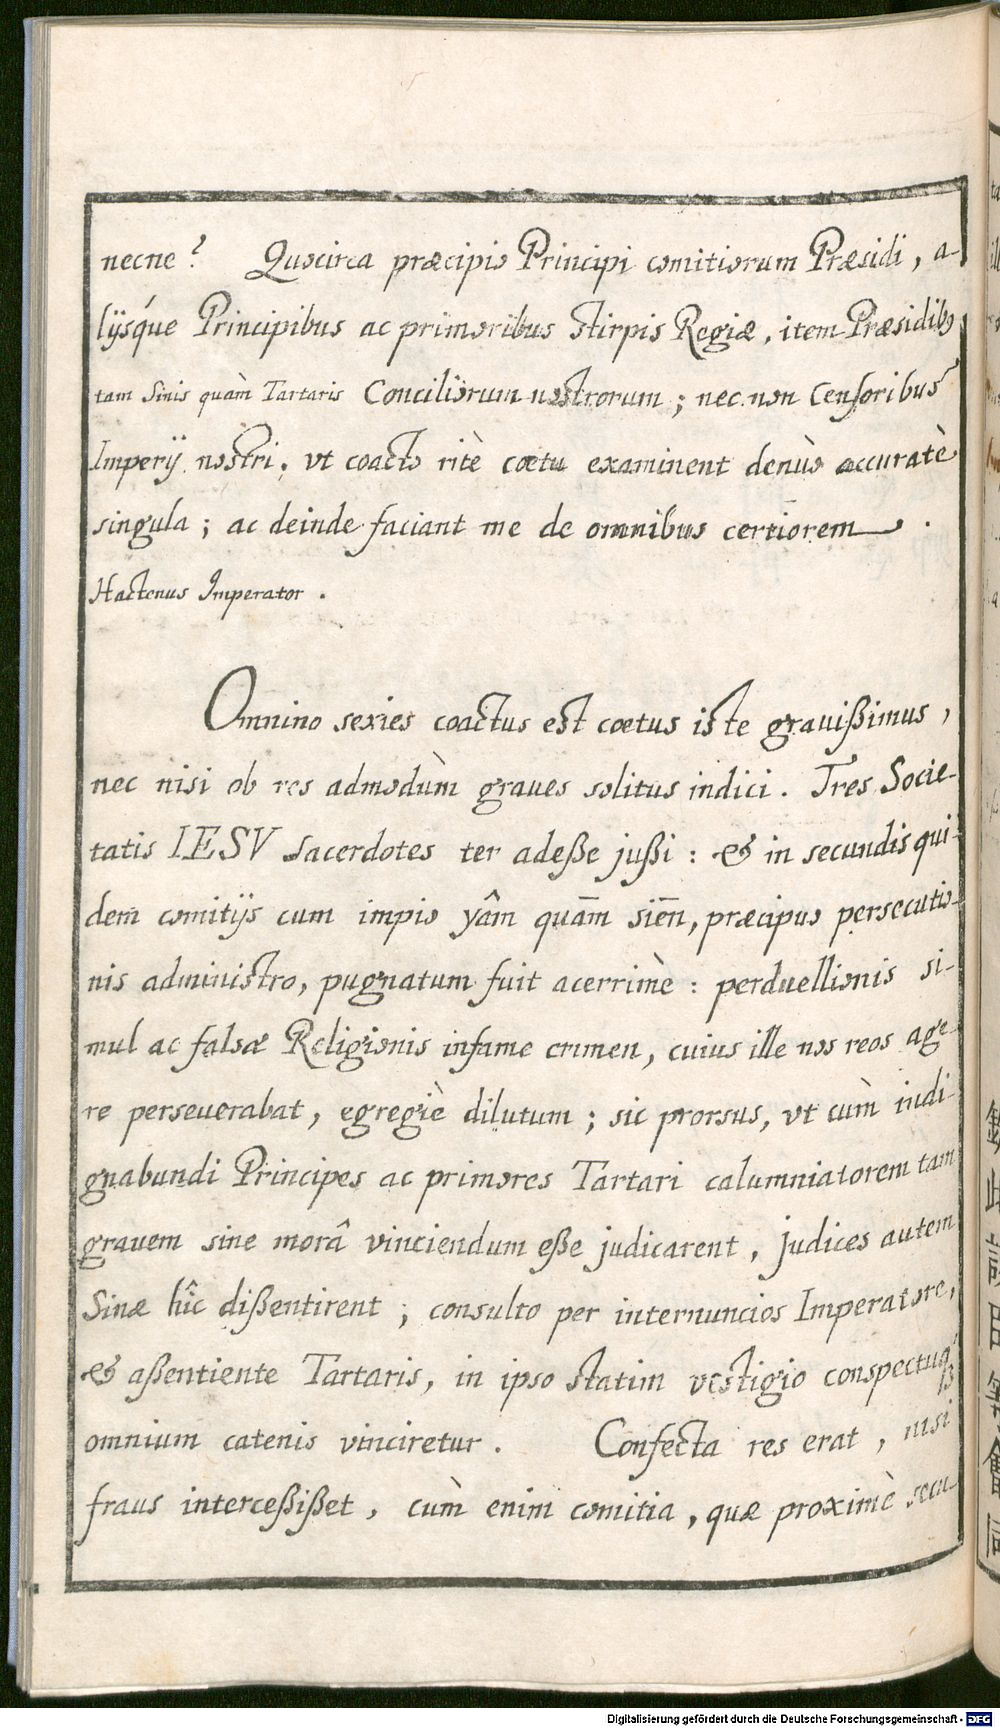 necne? Quocirca præcipio Principi comitiorum Præsidi, a-
lijsq́ue Principibus ac primoribus stirpis Regiæ, item Præsidibꝰ
tam Sinis quàm Tartaris Conciliorum nostrorum; nec non Censoribus
Imperij nostri, vt coacto ritè cœtu examinent denùo accuratè
singula; ac deinde faciant me de omnibus certiorem.
Hactenus Imperator.
Omnino sexies coactus est cœtus iste grauißimus,
nec nisi ob res admodùm graues solitus indici. Tres Socie-
tatis IESV Sacerdotes ter adeße jußi: & in secundis qui-
dem comitijs cum impio yâm quām siēn, præcipuo persecutio-
nis administro, pugnatum fuit acerrimè: perduellionis si-
mul ac falsæ Religionis infame crimen, cuius ille nos reos age-
re perseuerabat, egregiè dilutum; sic prorsus, vt cùm indi-
gnabundi Principes ac primores Tartari calumniatorem tam
grauem sine morâ vinciendum eße judicarent, judices autem
Sinæ hîc dißentirent; consulto per internuncios Imperatore,
& aßentiente Tartaris, in ipso statim vestigio conspectuq́ꝫ
omnium catenis vinciretur. Confecta res erat, nisi
fraus interceßißet, cùm enim comitia, quæ proximè secu-
鐸
此
Digitalisierung gefördert durch die Deutsche Forschungsgemeinschaft - DFG